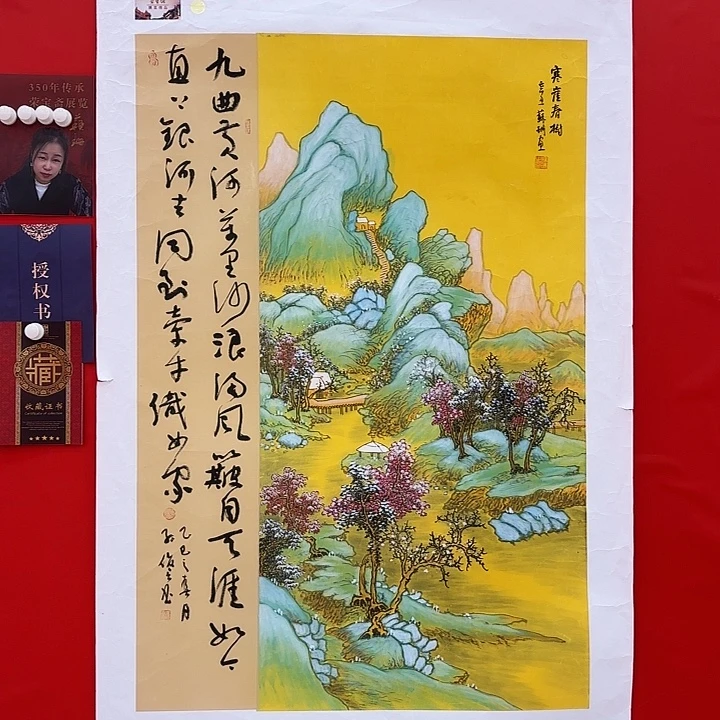 寒崖春樹
九曲黄河万里沙浪淘风簸自天涯如今
直上銀河去同到牵牛織女家
乙巳之春月
350年传承
荣宝斋展览
授权书
藏
收藏证书